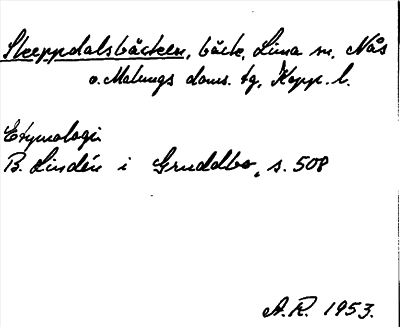 Skeppdalsbäcken, bäck, Lima sn, Nås
o. Malungs doms. tg, Kopp. l.
Etymologi
B. Lindén i Gruddbo, s. 508
A. R. 1953.